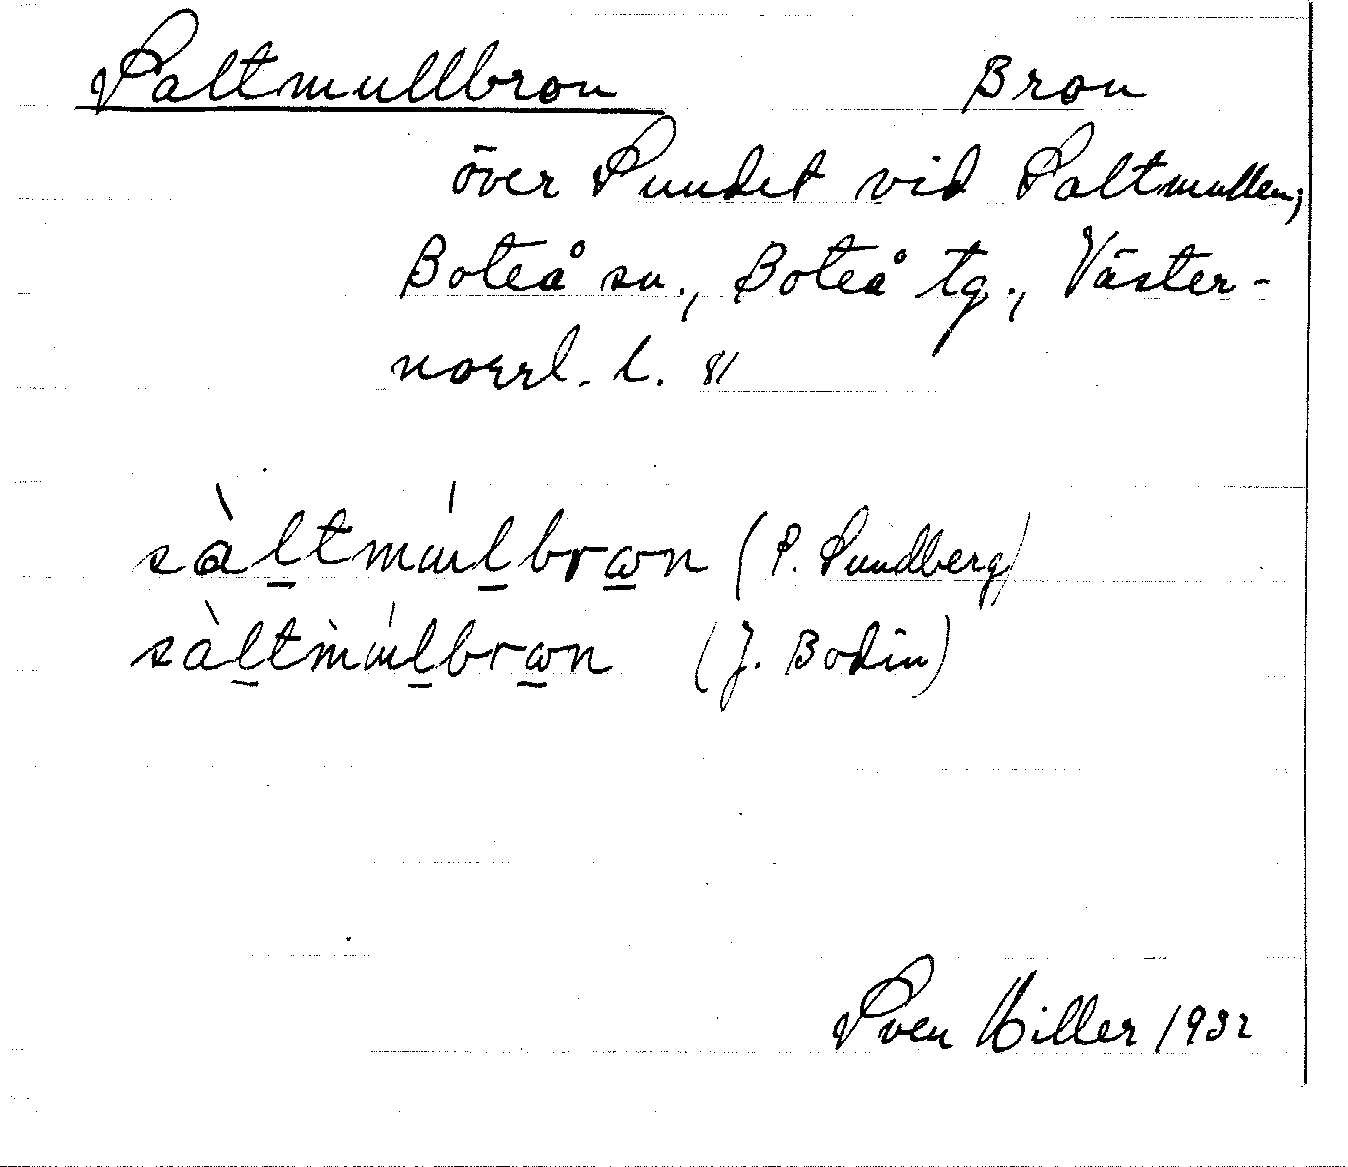 Saltmullbron Bron
över Sundet vid Saltmullen,
Boteå sn., Boteå tg., Väster-
norrl. l. 81
sàl̲tmúl̲brω̲n (P. Sundberg)
sàl̲tm̀úl̲brω̲n (J. Bodin)
Sven Hiller 1932